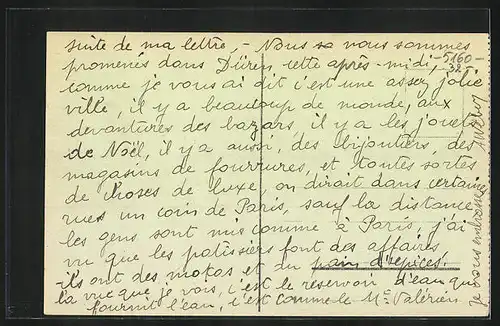 suite de ma lettre, - Nous nous sommes
promenés dans Düren cette après-midi,
comme je vous ai dit c'est une assez jolie
ville, il y a beaucoup de monde, aux
devantures des bazars, il y a les jouets
de Noël, il y a aussi, des bijoutiers, des
magasins de fourrures, et toutes sortes
de choses de luxe, on dirait dans certaines
rues un coin de Paris, sauf la distance
les gens sont mis comme à Paris, j'ai
vu que les patissiers font des affaires
ils ont des mokas et du pain d'épices.
la vue que je vois, c'est le reservoir d'eau qui
fournit l'eau, c'est comme le Mt Valérien
5160-
32
Je vous embrasse